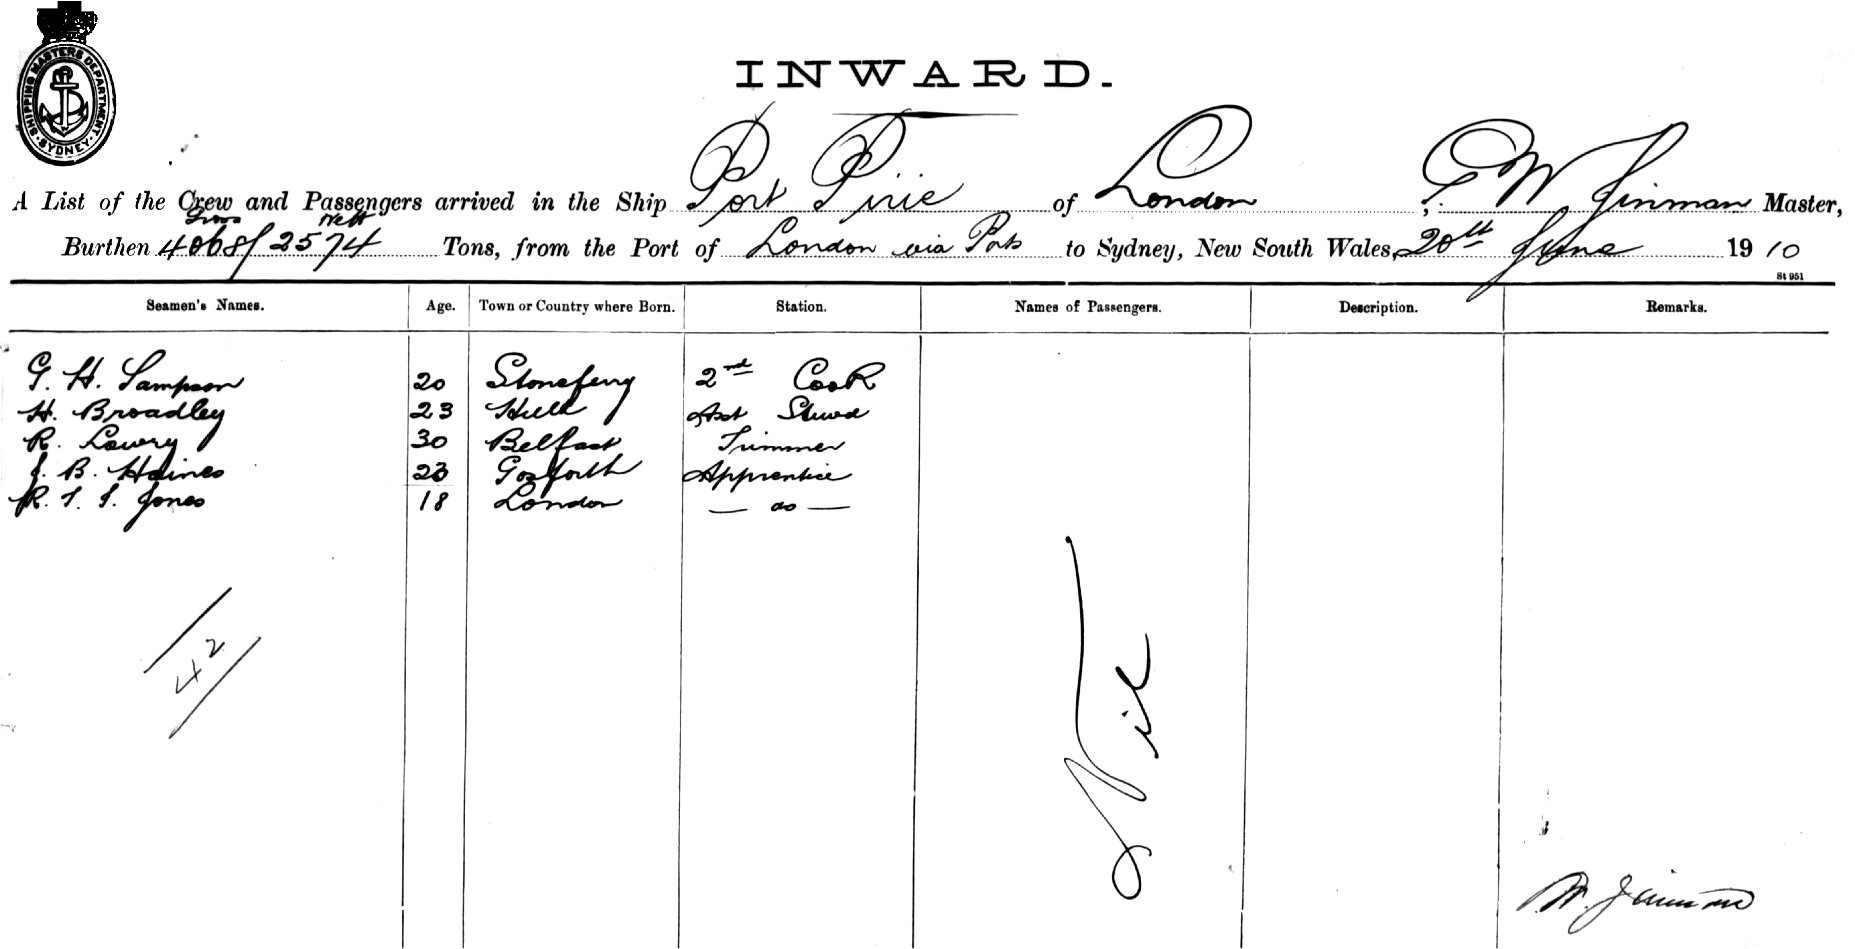 SHIPPING MASTERS DEPARTMENT
SYDNEY
INWARD.
A List of the Crew and Passengers arrived in the Ship Port Pirie of London, Master,
Gross Nett
Burthen 4068/2574 Tons, from the Port of London via Ports to Sydney, New South Wales, 20th June 1910
St 951
Seamen's Names. Age. Town or Country where Born. Station. Names of Passengers. Description. Remarks.
G. H. Sampson 20 Stoneferry 2nd Cook
H. Broadley 23 Hull Asst Stewd
R. Lowry 30 Belfast Trimmer
J. B. Haines 23 Gosforth Apprentice
R. T. T. Jones 18 London — do —
42
Nil